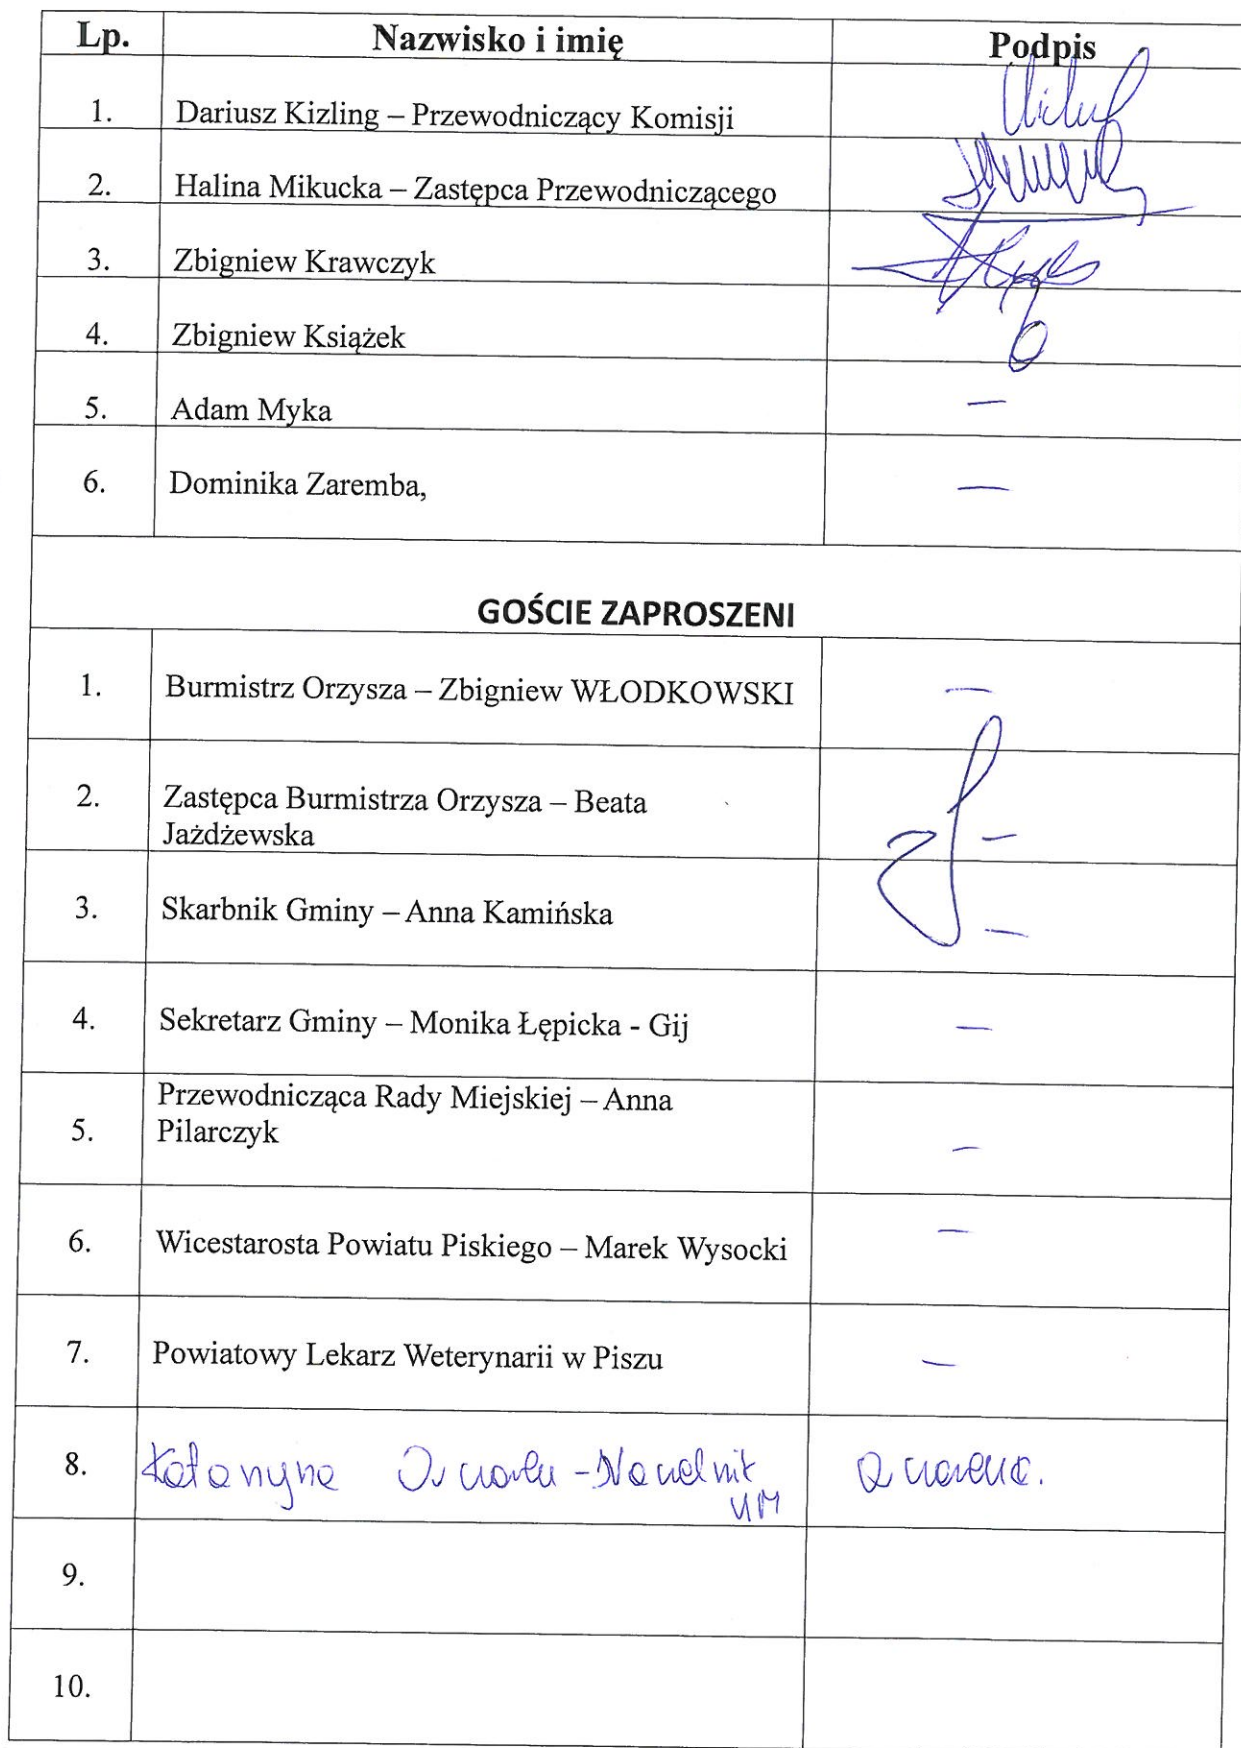 Lp. Nazwisko i imię Podpis
1. Dariusz Kizling – Przewodniczący Komisji
2. Halina Mikucka – Zastępca Przewodniczącego
3. Zbigniew Krawczyk
4. Zbigniew Książek
5. Adam Myka —
6. Dominika Zaremba, —
GOŚCIE ZAPROSZENI
1. Burmistrz Orzysza – Zbigniew WŁODKOWSKI —
2. Zastępca Burmistrza Orzysza – Beata
Jażdżewska —
3. Skarbnik Gminy – Anna Kamińska —
4. Sekretarz Gminy – Monika Łępicka - Gij —
Przewodnicząca Rady Miejskiej – Anna
5. Pilarczyk —
6. Wicestarosta Powiatu Piskiego – Marek Wysocki —
7. Powiatowy Lekarz Weterynarii w Piszu —
8. Katarzyna - Naczelnik
UM
9.
10.